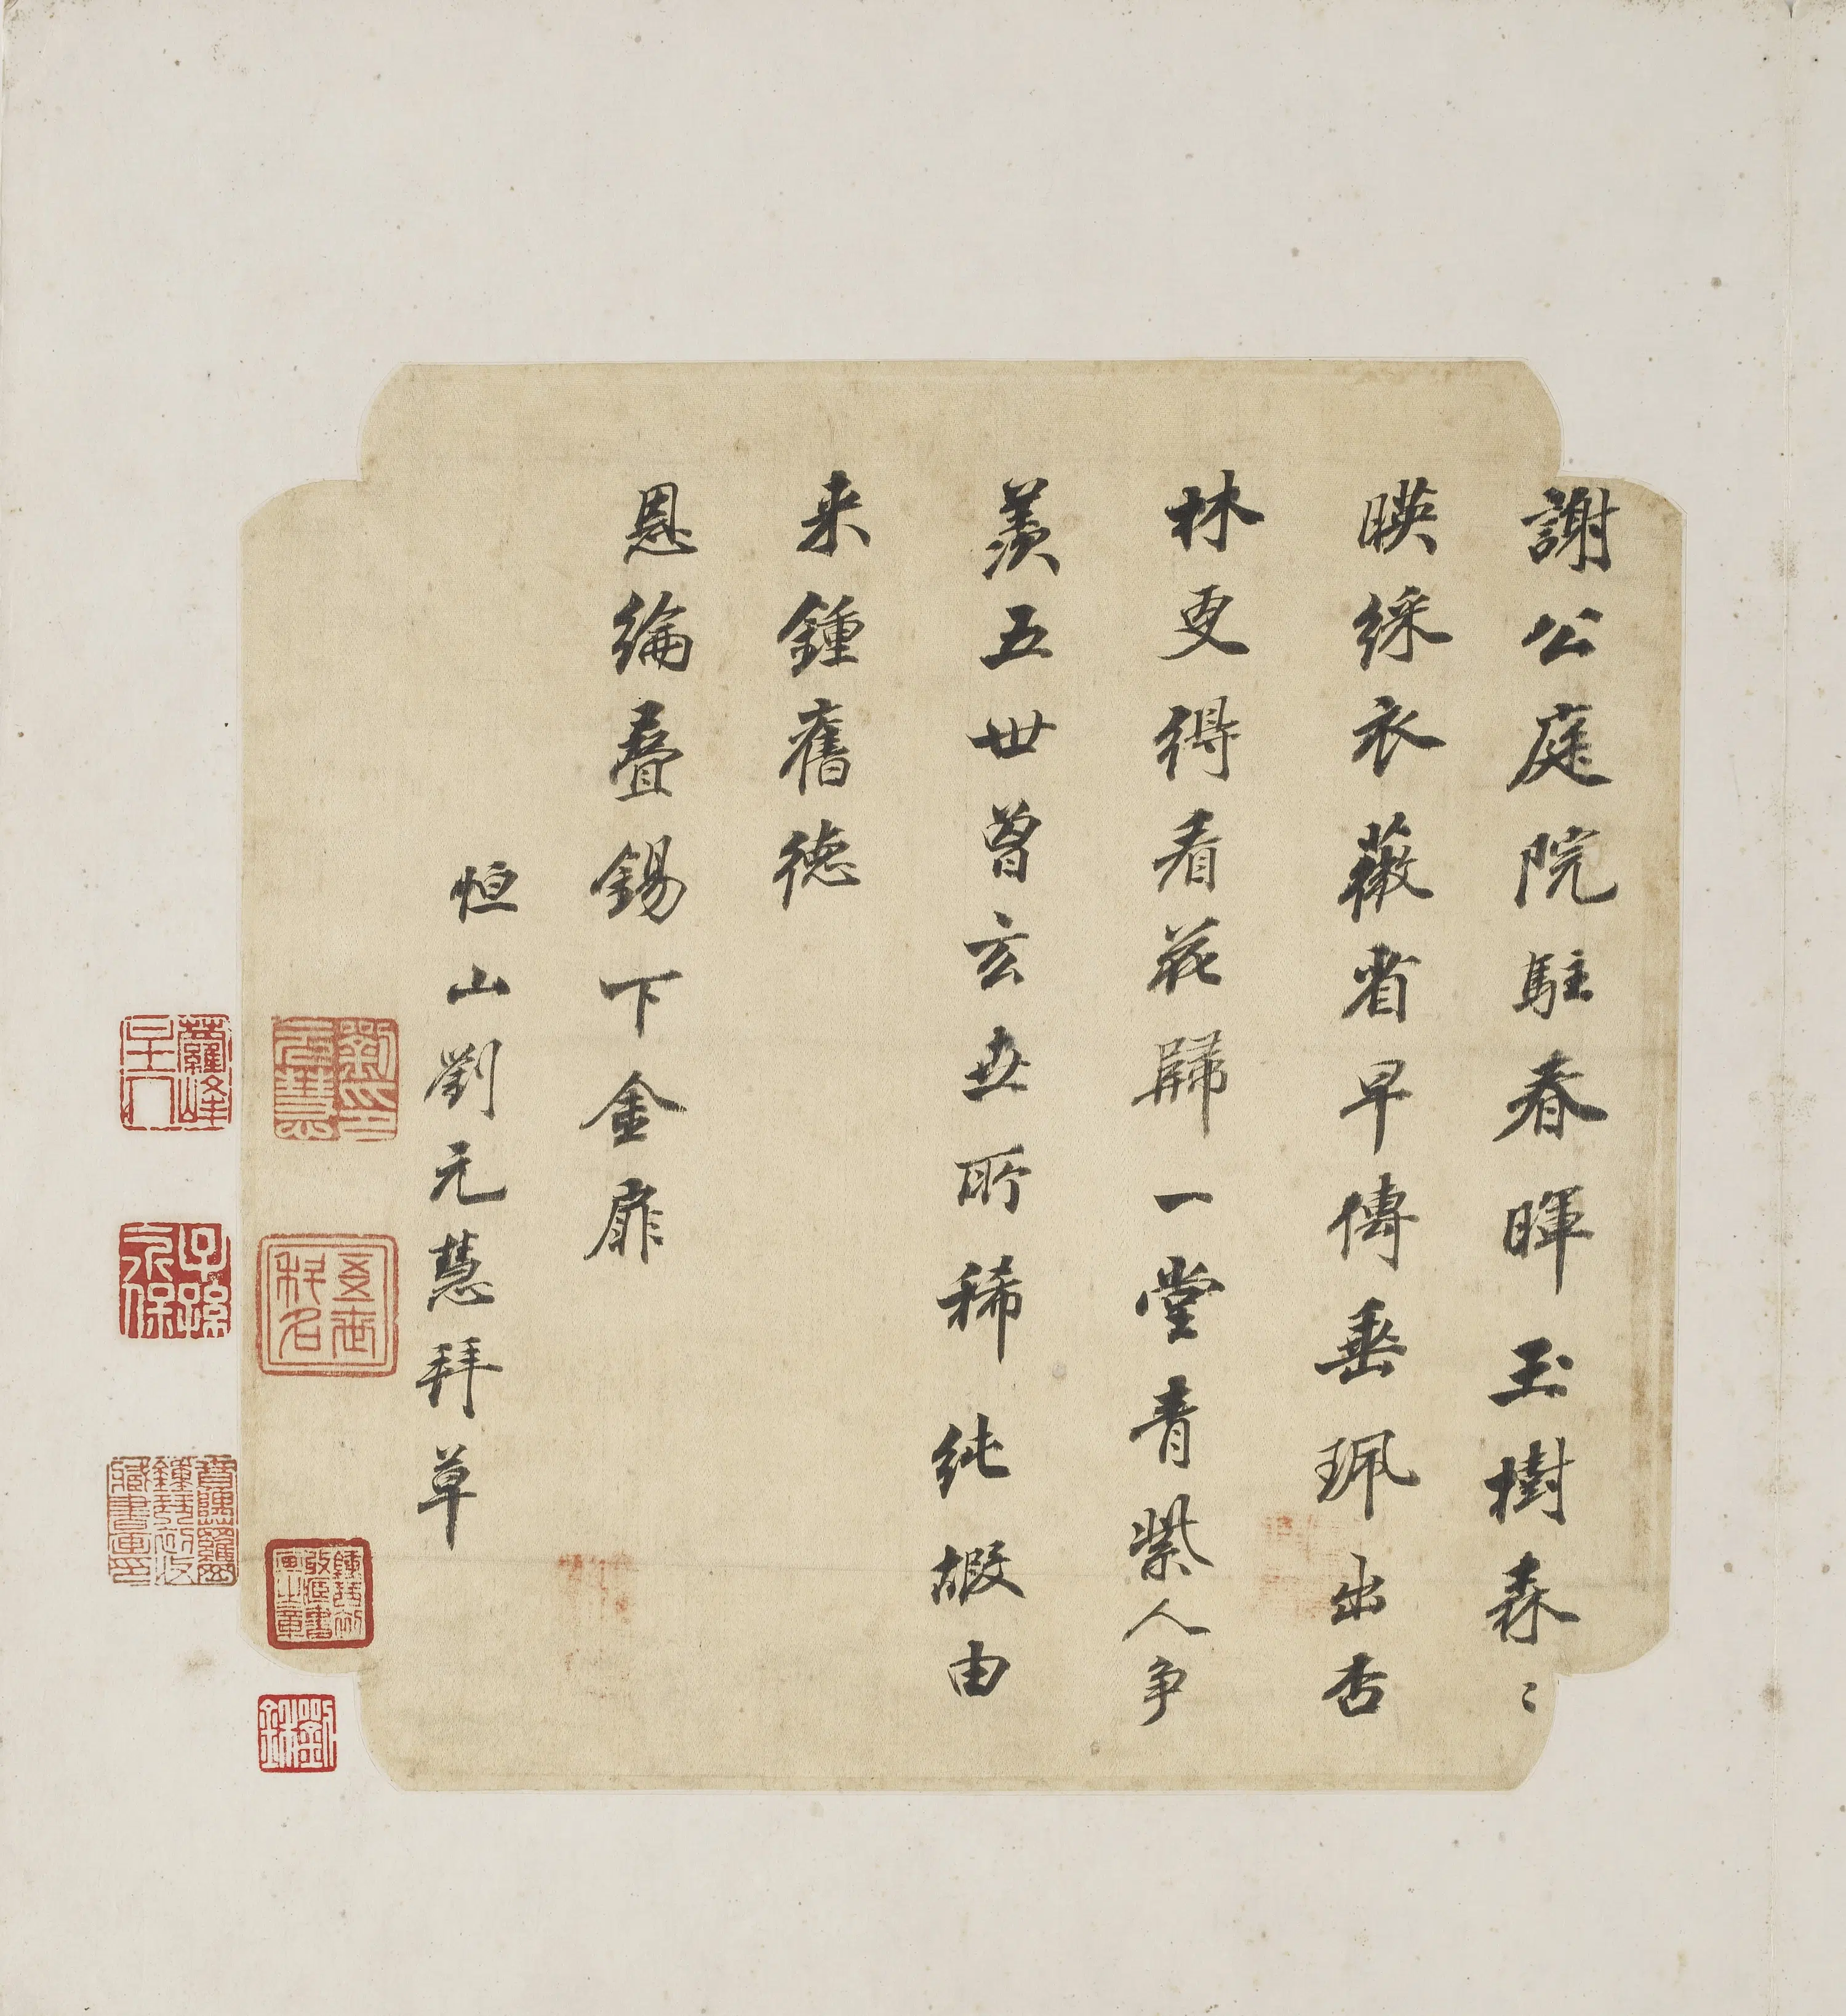 謝公庭院駐春暉玉樹森〻
暎綵衣薇省早傳垂珮出杏
林更得看花歸一堂青紫人爭
羨五世曾玄世所稀純嘏由
来鍾舊德
恩綸疊錫下金扉
恒山劉元慧拜草
劉印元慧
子孫永保